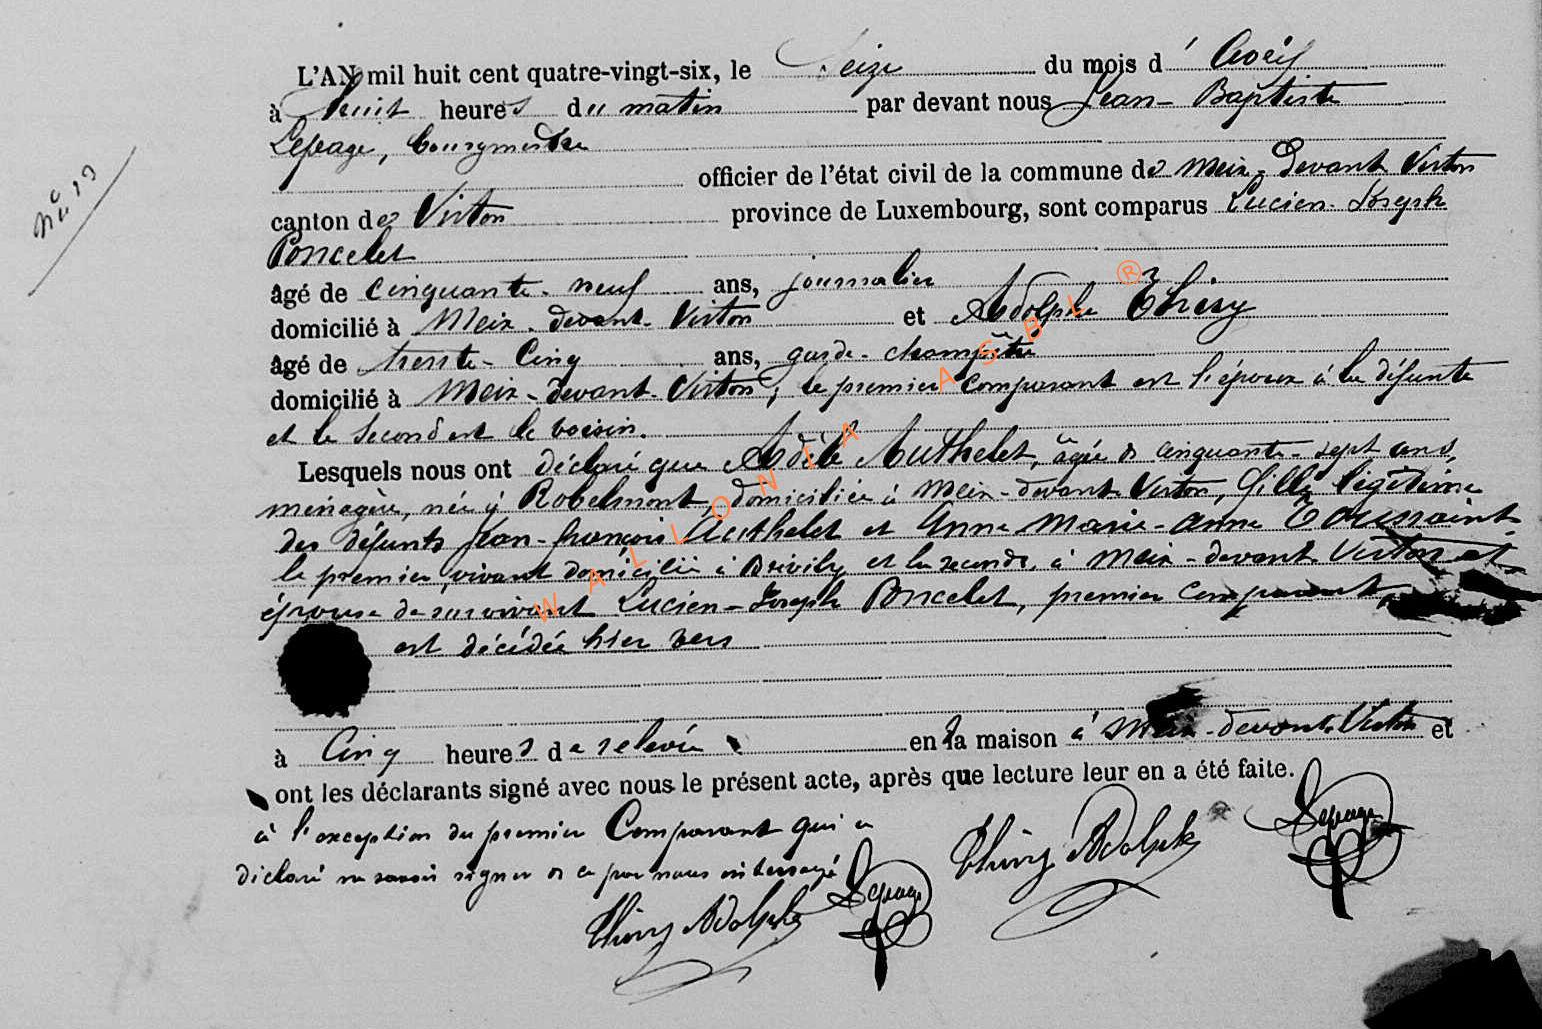 L'AN mil huit cent quatre-vingt-six, le Seize du mois d'Avril
à huit heures du matin par devant nous Jean-Baptiste
Lepage, bourgmestre
officier de l'état civil de la commune de Meix-devant-Virton
canton de Virton province de Luxembourg, sont comparus Lucien-Joseph
Poncelet
âgé de cinquante-neuf ans, journalier
domicilié à Meix-devant-Virton et Adolphe Thiry
âgé de trente-cinq ans, garde-champêtre
domicilié à Meix-devant-Virton, le premier comparant est l'époux à la défunte
et le second est le voisin.
Lesquels nous ont déclaré que Adèle Authelet, âgée de cinquante-sept ans,
ménagère, née à Robelmont, domiciliée à Meix-devant-Virton, fille légitime
des défunts Jean-françois Authelet et Anne Marie-Anne Toussaint
le premier, vivant domicilié à et la seconde, à Meix-devant-Virton et
épouse de survivant Lucien-Joseph Poncelet, premier comparant
est décédée hier vers
à Cinq heures de relevée en la maison à Meix-devant-Virton et
ont les déclarants signé avec nous le présent acte, après que lecture leur en a été faite.
à l'exception du premier Comparant qui a
déclaré ne savoir signer de ce par nous interrogé
Thiry Adolphe Lepage
Thiry Adolphe Lepage
N° 13
WALLONIA ASBL ®